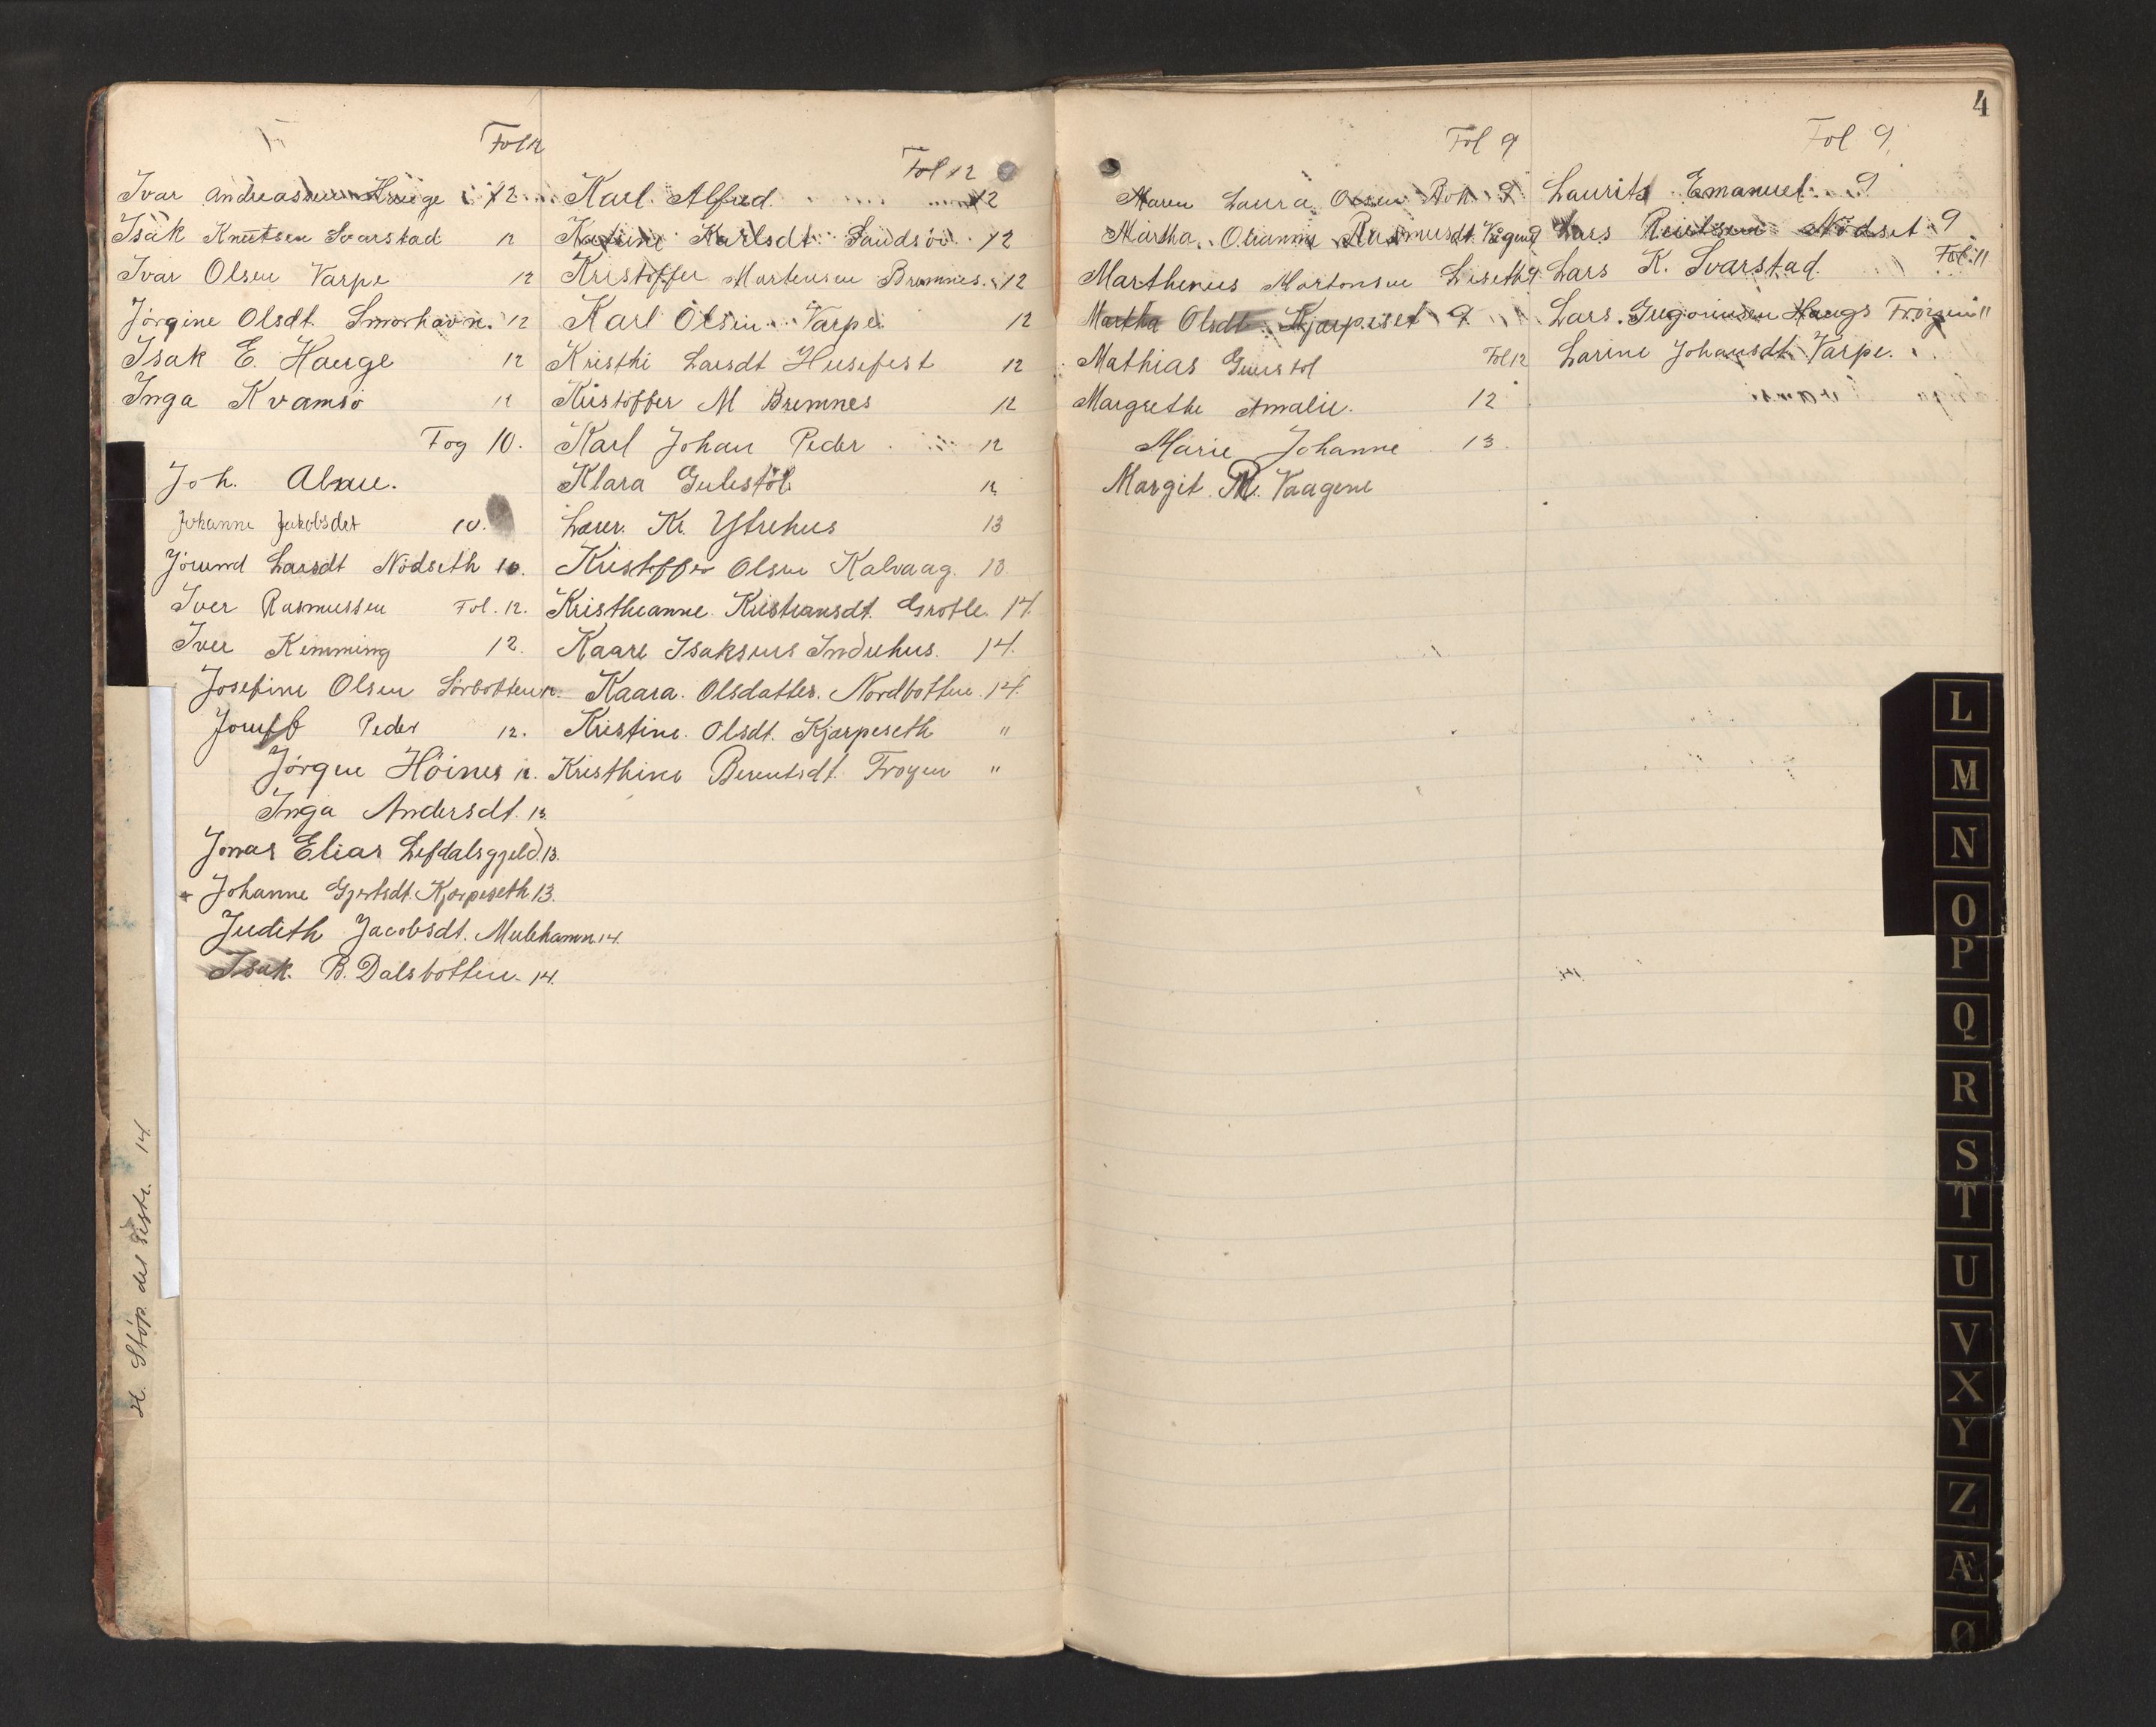 Fol 12
Ivar Andreassen Hauge 12
Isak Knutsen Svarstad 12
Ivar Olsen Varpe 12
Jörgine Olsdt. Smörhavn. 12
Isak E. Hauge 12
Inga Kvamsö 12
Fog 10.
Joh. Alnæ.
Johanne Jakobsdet 10.
Jörund Larsdt Nödseth 10.
Iver Rasmussen Fol. 12.
Iver Kimming 12.
Josefine Olsen Sörbotten 12.
Josef Peder 12.
Jörgen Höines 12.
Inga Andersdt. 13.
Jonas Elias Lefdalsgjeld. 13.
Johanne Gjertsdt. Kjærpeseth 13.
Judith Jacobsdt. Mulehamn. 14.
Isak. B. Dalsbotten. 14.
H. Støp. del 14
Fol 12
Karl Alfred 12
Karlsdt. Sandsöi 12
Kristoffer Mortensen Bremnes. 12
Karl Olsen Varpe. 12
Kristhi Larsdt Husefest 12
Kristoffer M Bremnes 12
Karl Johan Peder 12
Klara Gulestöl 12
Lærer. Kr. Ytrehus 13
Kristoffer Olsen Kalvaag. 13
Kristheanne Kristiansdt. Grotle. 14.
Kaare Isaksens Indrehus. 14.
Kaara. Olsdatter. Nordbotten. 14.
Kristine. Olsdt. Kjærpeseth "
Kristhine Berentsdt. Froyen "
Fol 9
Maren Laura Olsen 9
Martha. Olianne Rasmusdt. 9
Marthenius Mortensen Liseth 9.
Martha Olsdt. Kjærpeset 9
Mathias Gulestöl Fol 12
Margrethe Amalie. 12
Marie Johanne 13.
Margit M. Vaagene
4
Fol 9,
Laurits Emanuel. 9
Lars Nödset 9
Lars K. Svarstad. Fol. 11
Lars. Gregoriussen Haugs Fröyen 11
Larine Johansdt. Varpe.
L
M
N
O
P
Q
R
S
T
U
V
X
Y
Z
Æ
Ø